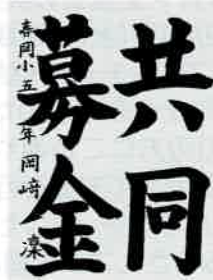 共同
募金
春岡小五年岡﨑凜